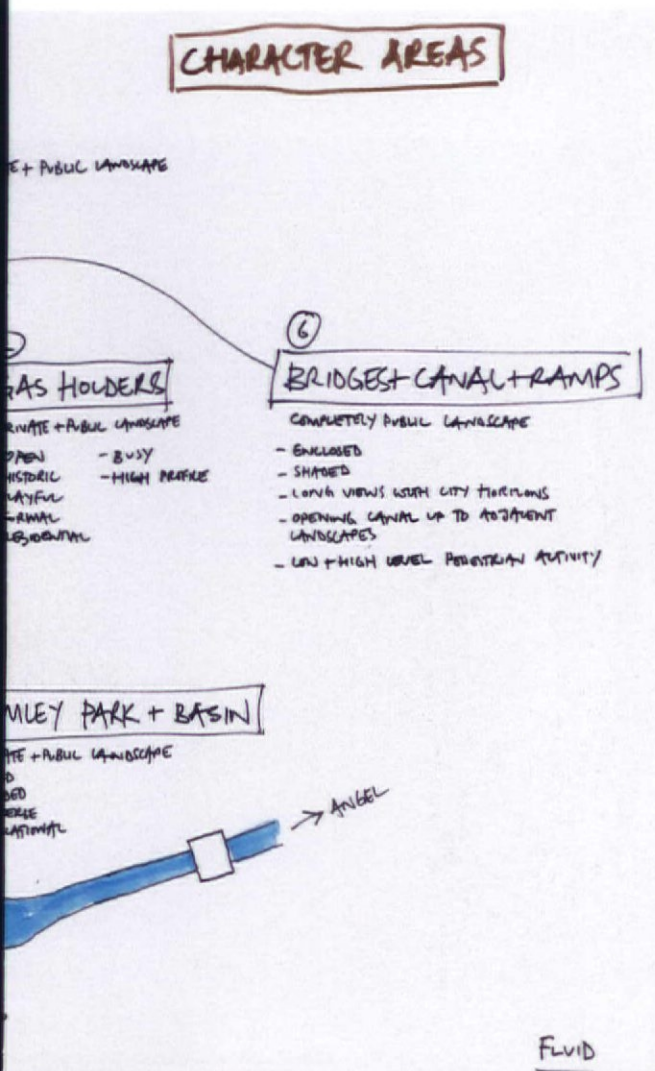 CHARACTER AREAS
E + PUBLIC LANDSCAPE
6
GAS HOLDERS
RIVATE + PUBLIC LANDSCAPE
OPEN - BUSY
HISTORIC - HIGH PROFILE
LAYFUL
RMAL
ESIDENTIAL
BRIDGES + CANAL + RAMPS
COMPLETELY PUBLIC LANDSCAPE
- ENCLOSED
- SHADED
- LONG VIEWS WITH CITY HORIZONS
- OPENING CANAL UP TO ADJACENT
LANDSCAPES
- LOW + HIGH LEVEL PEDESTRIAN ACTIVITY
MLEY PARK + BASIN
TE + PUBLIC LANDSCAPE
D
DED
ERSE
ATIONAL
→ ANGEL
FLUID